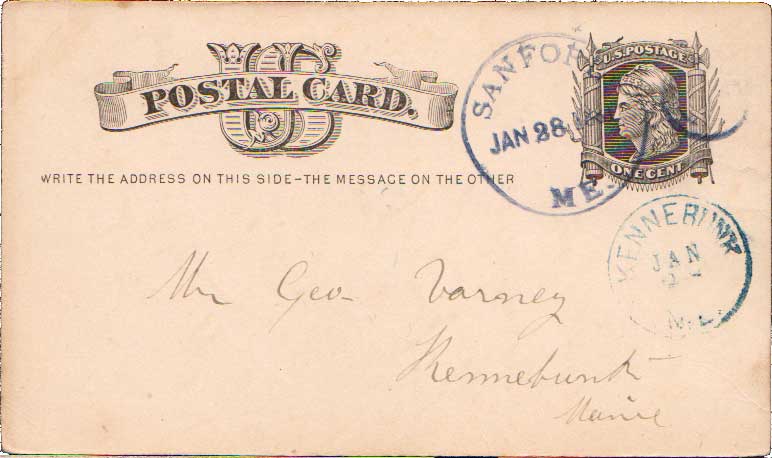 US
POSTAL CARD.
WRITE THE ADDRESS ON THIS SIDE-THE MESSAGE ON THE OTHER
U.S. POSTAGE
ONE CENT
SANFOR
JAN 28
ME.
KENNEBUNK
JAN
ME.
Mr Geo Varney
Kennebunk
Maine